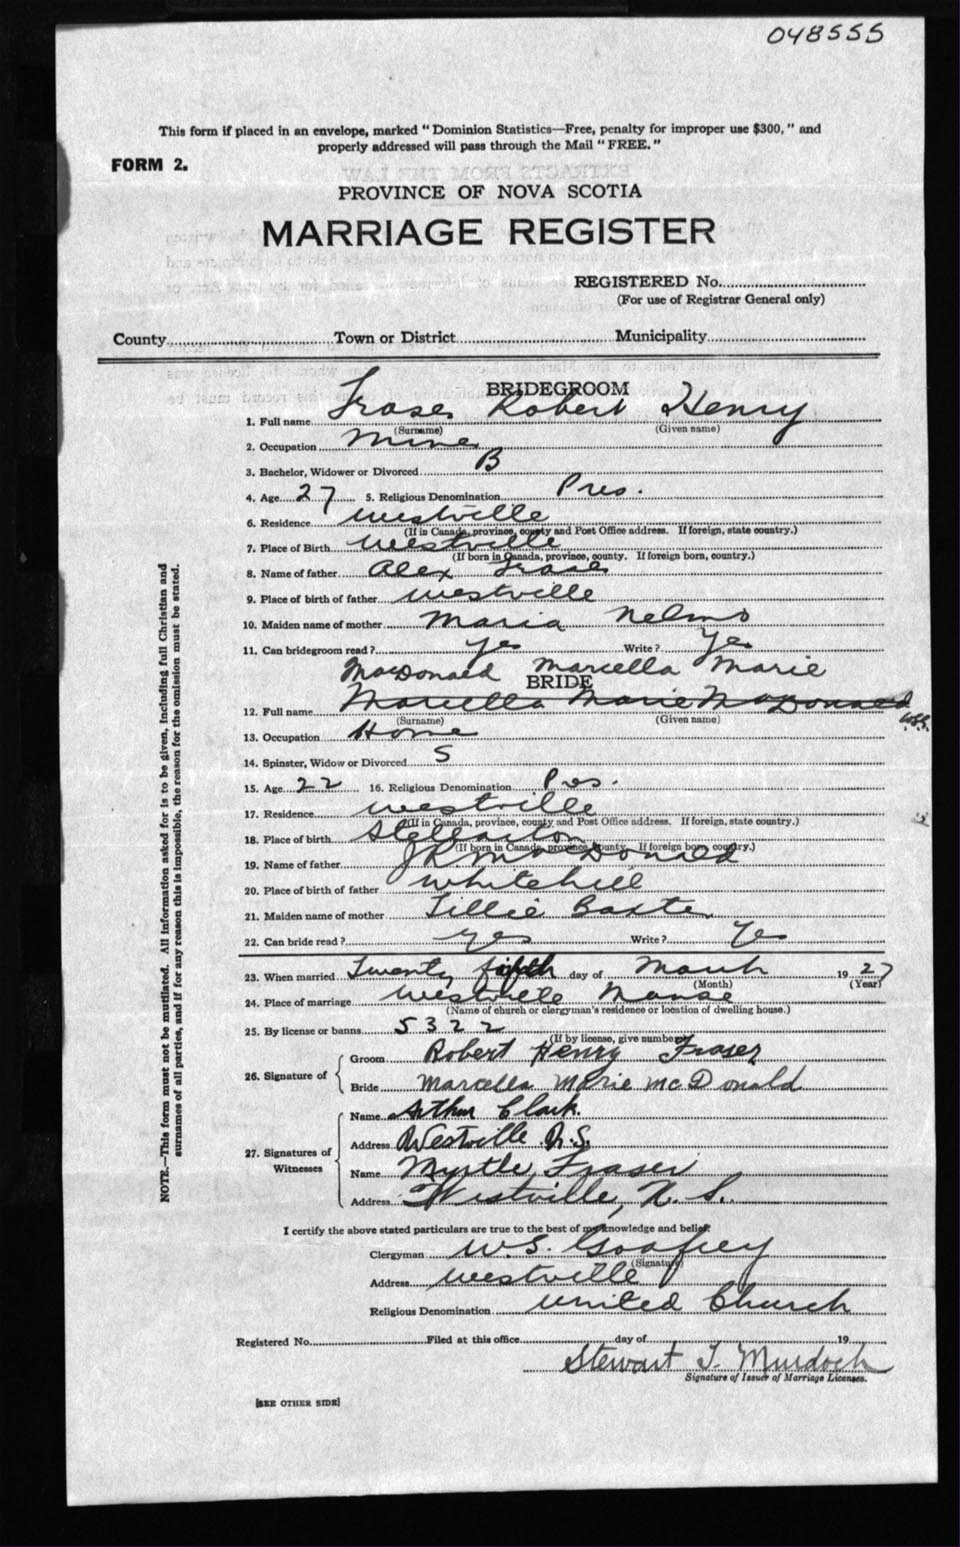 048555
This form if placed in an envelope, marked "Dominion Statistics—Free, penalty for improper use $300," and
properly addressed will pass through the Mail "FREE."
FORM 2.
PROVINCE OF NOVA SCOTIA
MARRIAGE REGISTER
REGISTERED No.
(For use of Registrar General only)
County Town or District Municipality
BRIDEGROOM
1. Full name Fraser Robert Henry
(Surname) (Given name)
2. Occupation Miner
3. Bachelor, Widower or Divorced B
4. Age 27 5. Religious Denomination Pres.
6. Residence Westville
(If in Canada, province, county and Post Office address. If foreign, state country.)
7. Place of Birth Westville
(If born in Canada, province, county. If foreign born, country.)
8. Name of father Alex Fraser
9. Place of birth of father Westville
10. Maiden name of mother Maria
11. Can bridegroom read? Yes Write? Yes
MacDonald Marcella Marie
BRIDE
12. Full name Marcella Marie MacDonald
(Surname) (Given name)
13. Occupation Home
14. Spinster, Widow or Divorced S
15. Age 22 16. Religious Denomination Pres.
17. Residence Westville
(If in Canada, province, county and Post Office address. If foreign, state country.)
18. Place of birth Stellarton
(If born in Canada, province county. If foreign born, country.)
19. Name of father J R MacDonald
20. Place of birth of father Whitehill
21. Maiden name of mother Tillie Baxter
22. Can bride read? Yes Write? Yes
23. When married Twenty fifth day of March 1927
(Month) (Year)
24. Place of marriage Westville Manse
(Name of church or clergyman's residence or location of dwelling house.)
25. By license or banns 5322
(If by license, give number)
26. Signature of
Groom Robert Henry Fraser
Bride Marcella Marie McDonald
27. Signatures of Witnesses
Name Arthur Clark.
Address Westville N.S.
Name Myrtle Fraser
Address Westville, N. S.
I certify the above stated particulars are true to the best of my knowledge and belief.
Clergyman W.S. Godfrey
(Signature)
Address Westville
Religious Denomination United Church
Registered No. Filed at this office day of 19
Stewart J. Murdoch
Signature of Issuer of Marriage Licenses.
[SEE OTHER SIDE]
NOTE.—This form must not be mutilated. All information asked for is to be given, including full Christian and
surnames of all parties, and if for any reason this is impossible, the reason for the omission must be stated.